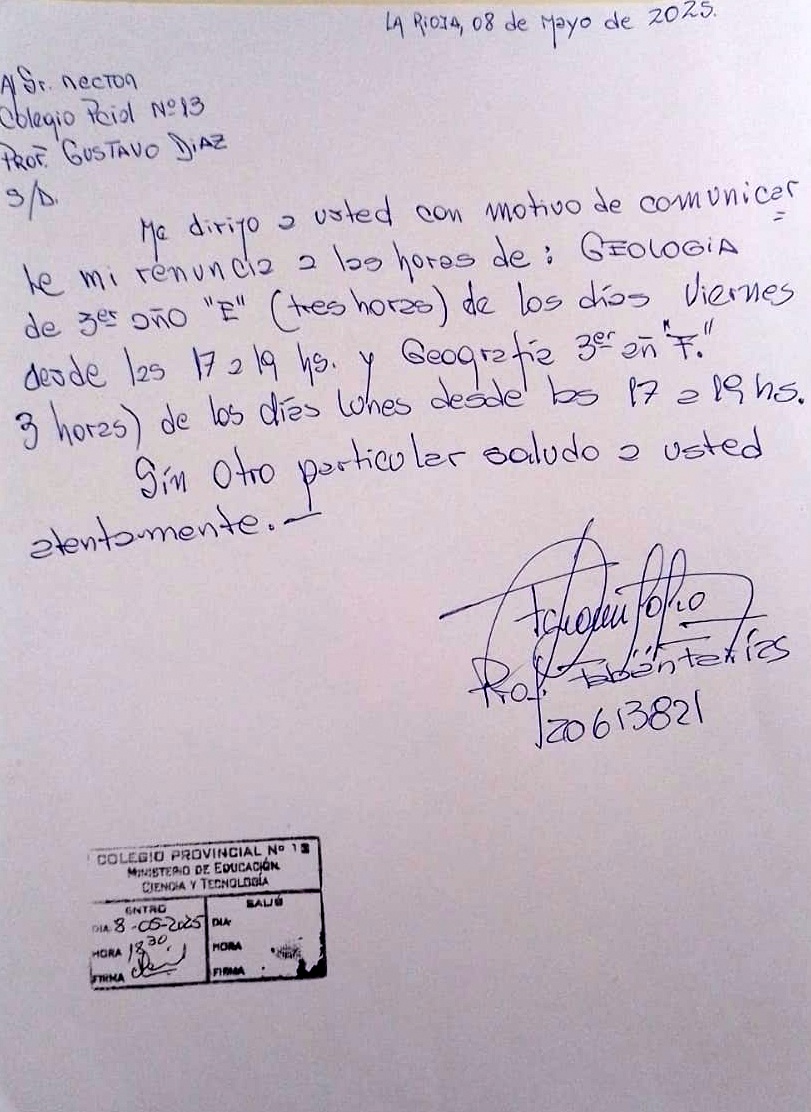 LA RIOJA, 08 de Mayo de 2025.
Al Sr. Rector
Colegio Pcial Nº 13
PROF. GUSTAVO DiAZ
S/D.
Me dirijo a usted con motivo de comunicar
le mi renuncia a las horas de: GEOLOGiA
de 3er año "E" (tres horas) de los días Viernes
desde las 17 a 19 hs. y Geografía 3er añ "F."
3 horas) de los días lunes desde las 17 a 19 hs.
Sin Otro particular saludo a usted
atentamente.—
Prof.
20613821
COLEGIO PROVINCIAL Nº 13
MINISTERIO DE EDUCACIÓN
CIENCIA Y TECNOLOGÍA
ENTRO SALIÓ
DIA 8-05-2025 DIA
HORA 18 30 HORA
FIRMA FIRMA